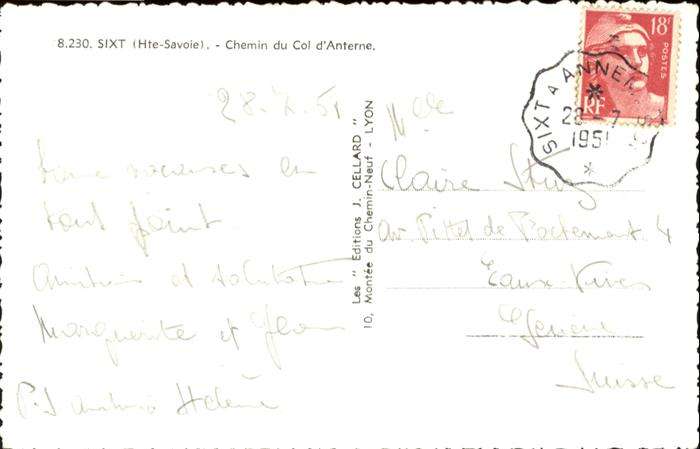 8.230. SIXT (Hte-Savoie). - Chemin du Col d'Anterne.
28.7.51
vacances en
tout point.
Amitiés et salutations
Marguerite et
P.S amitiés Hélène
Les " Editions J. CELLARD "
10, Montée du Chemin-Neuf - LYON
18F
POSTES
RF
SIXT A ANNE
28 - 7
1951
Mlle
Claire
av. Pittet de Rochemont 4
Eaux-Vives
Genève
Suisse